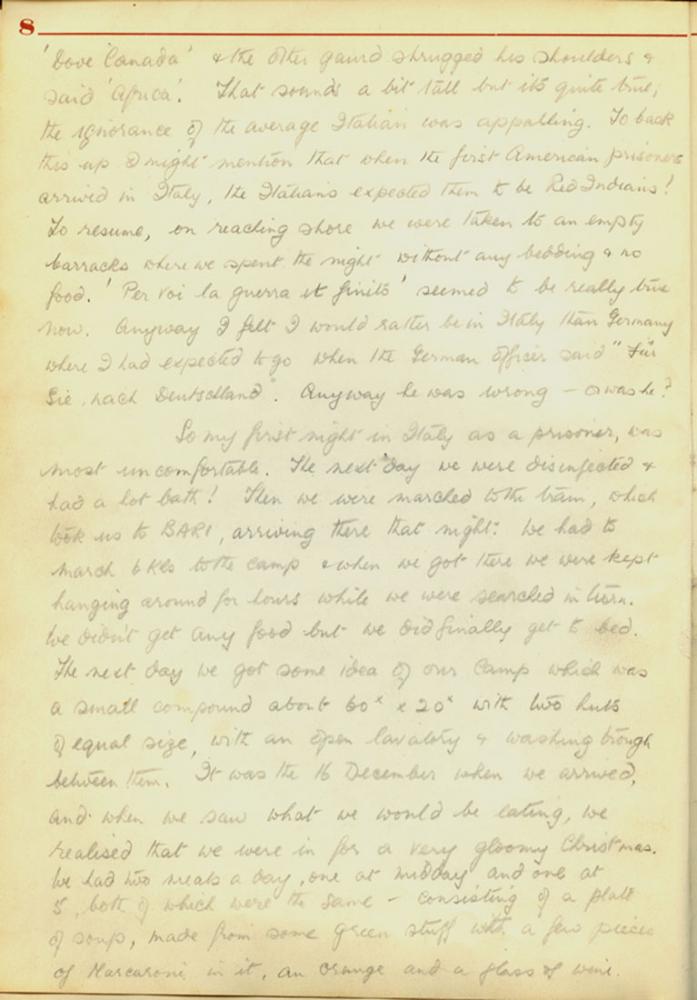 8
'Dove Canada' & the other gaurd shrugged his shoulders &
said 'Africa'. That sounds a bit tall but its quite true;
the ignorance of the average Italian was appalling. To back
this up I might mention that when the first American prisoners
arrived in Italy, the Italians expected them to be Red Indians!
To resume, on reaching shore we were taken to an empty
barracks where we spent the night without any bedding & no
food. 'Per voi la guerra it finito' seemed to be really true
now. Anyway I felt I would rather be in Italy than Germany
where I had expected to go when the German officer said "Für
Sie, nach Deutschland". Anyway he was wrong – or was he?
So my first night in Italy as a prisoner, was
most uncomfortable. The next day we were disinfected &
had a hot bath! Then we were marched to the train, which
took us to BARI, arriving there that night. We had to
march 6 Kls to the camp & when we got there we were kept
hanging around for hours while we were searched in turn.
We didn't get any food but we did finally get to bed.
The next day we got some idea of our Camp which was
a small compound about 60ˣ x 20ˣ with two huts
of equal size, with an open lavatory & washing trough
between them. It was the 16 December when we arrived,
and when we saw what we would be eating, we
realised that we were in for a very gloomy Christmas.
We had two meals a day, one at midday and one at
5, both of which were the same – consisting of a plate
of soup, made from some green stuff with a few pieces
of Marcaroni in it, an orange and a glass of wine.